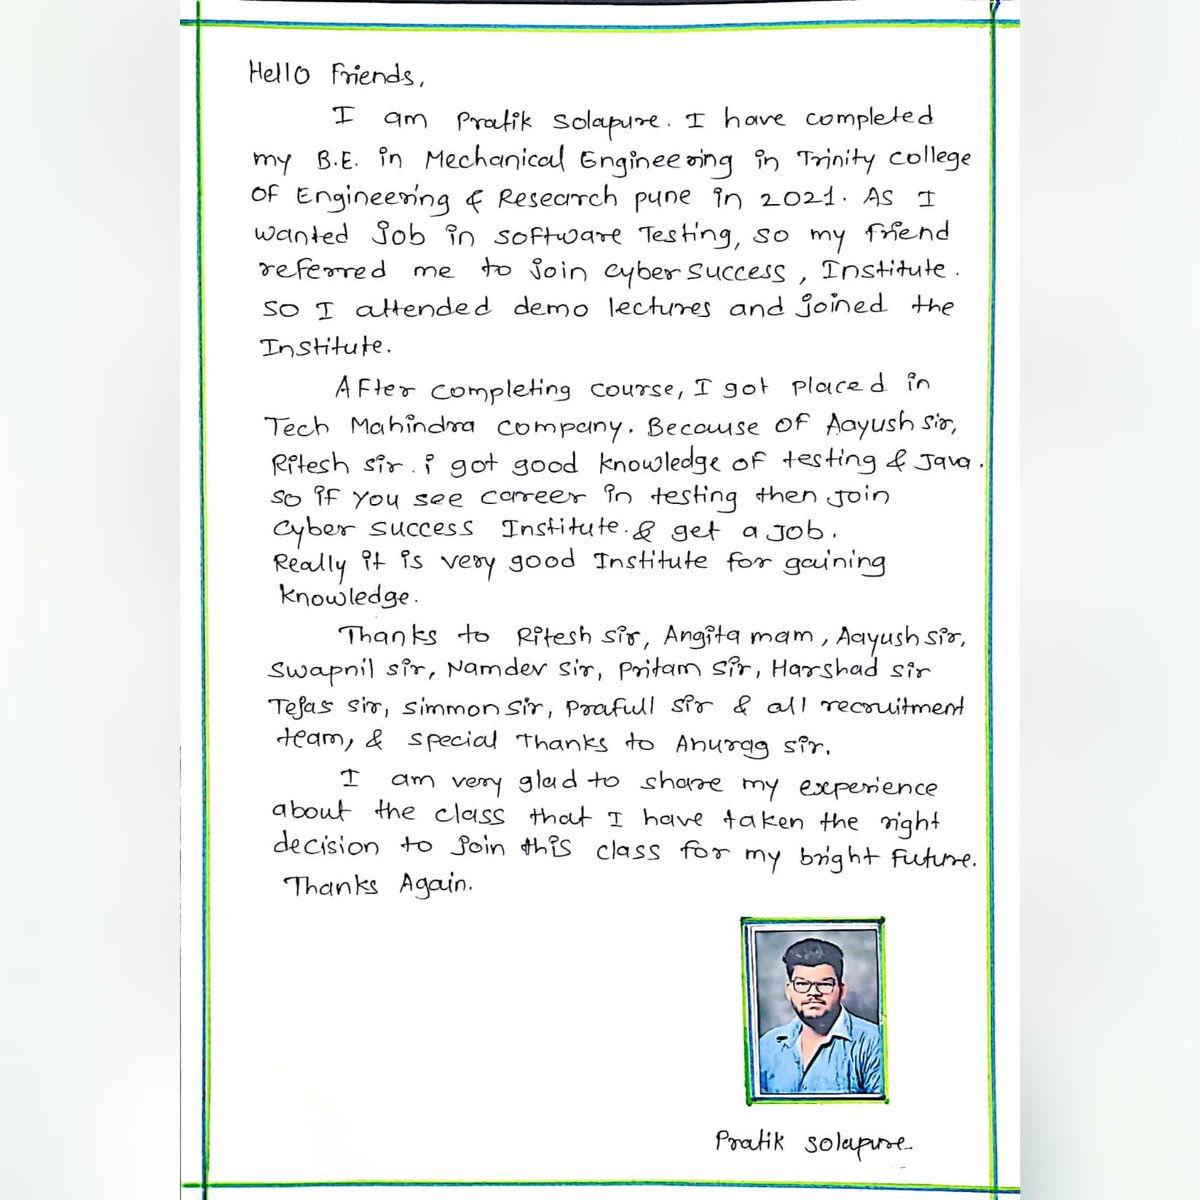 Hello Friends,
I am Pratik Solapure. I have completed
my B.E. in Mechanical Engineering in Trinity College
Of Engineering & Research pune in 2021. As I
wanted Job in Software Testing, so my friend
referred me to join cyber success, Institute.
So I attended demo lectures and joined the
Institute.
After completing course, I got placed in
Tech Mahindra company. Because of Aayush sir,
Ritesh sir. i got good knowledge of testing & Java.
So if you see career in testing then Join
Cyber success Institute. & get a Job.
Really it is very good Institute for gaining
knowledge.
Thanks to Ritesh sir, Angita mam, Aayush sir,
Swapnil sir, Namdev sir, Pritam Sir, Harshad sir
Tejas sir, Simmon Sir, Prafull sir & all recruitment
team, & special Thanks to Anurag sir.
I am very glad to share my experience
about the class that I have taken the right
decision to join this class for my bright Future.
Thanks Again.
Pratik Solapure